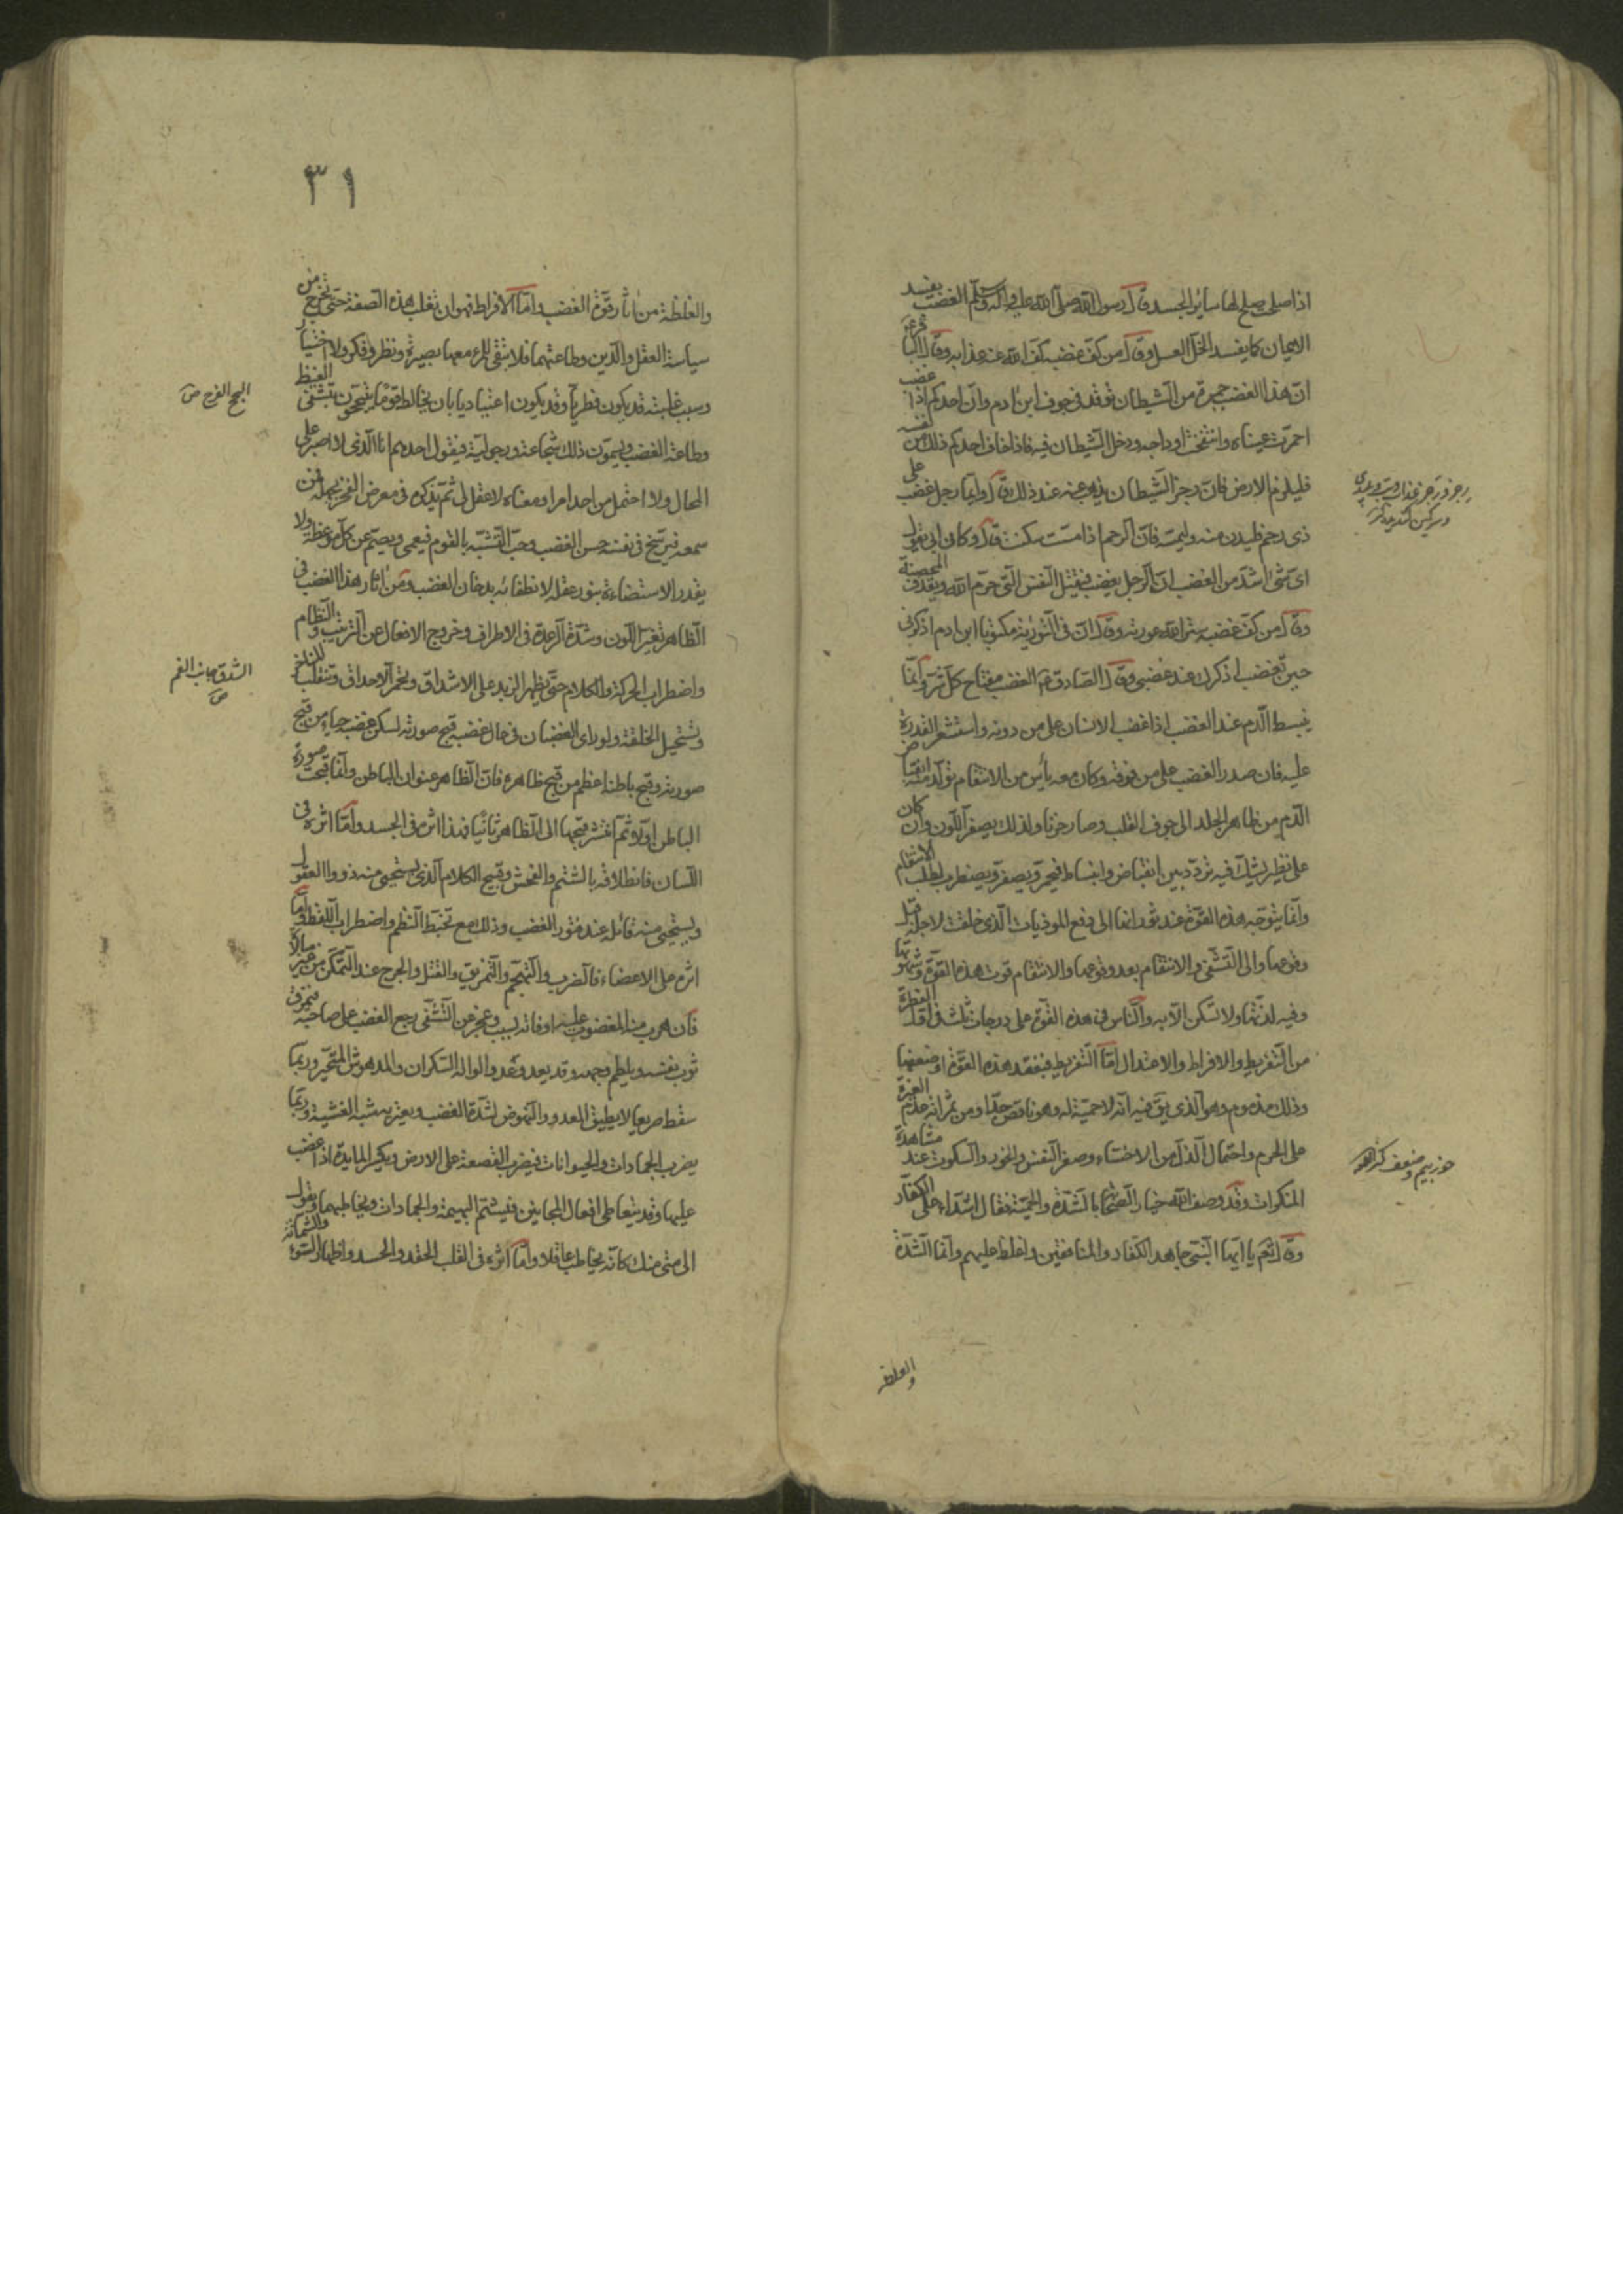 اذا صلحت صلح لها سائر الجسد قال رسول الله صلى الله عليه وآله وسلم الغضب يفسد
الايمان كما يفسد الخل العسل وقال من كف غضبه كف الله عنه عذابه وقال الباقر ع
ان هذا الغضب جمرة من الشيطان توقد في جوف ابن ادم وان احدكم اذا غضب
احمرت عيناه وانتفخت اوداجه ودخل الشيطان فيه فاذا خاف احدكم ذلك من نفسه
فليلزم الارض فان رجز الشيطان يذهب عنه عند ذلك وقال وايما رجل غضب على
ذي رحم فليدن منه وليمسه فان الرحم اذا مست سكنت وقال وكان ابي يقول
اي شئ اشد من الغضب ان الرجل يغضب فيقتل النفس التي حرم الله ويقذف المحصنة
وقال من كف غضبه ستر الله عورته وقال ان في التورية مكتوبا يا ابن ادم اذكرني
حين تغضب اذكرك عند غضبي وقال الصادق ع الغضب مفتاح كل شر وانما
ينبسط الدم عند الغضب اذا غضب الانسان على من دونه واستشعر القدرة
عليه فان صدر الغضب على من فوقه وكان معه يأس من الانتقام تولد منه انقباض
الدم من ظاهر الجلد الى جوف القلب وصار حزنا ولذلك يصفر اللون وان كان
على نظير يشك فيه تردد بين انقباض وانبساط فيحمر ويصفر ويضطرب لطلب الانتقام
وانما يتوجه هذه القوة عند ثورانها الى دفع الموذيات الذي خلقت لاجله قبل
وقوعها والى التشفي والانتقام بعد وقوعها والانتقام قوت هذه القوة وشهوتها
وفيه لذتها ولا تسكن الا به والناس في هذه القوة على درجات ثلث في اول الفطرة
من التفريط والافراط والاعتدال اما التفريط فبفقد هذه القوة او ضعفها
وذلك مذموم وهو الذي يق فيه انه لا حمية له وهو ناقص جدا ومن ثمراته عدم الغيرة
على الحرم واحتمال الذل من الاخساء وصغر النفس والخور والسكوت عند مشاهدة
المنكرات وقد وصف الله خيار الصحابة بالشدة والحمية فقال اشداء على الكفار
وقال تعم يا ايها النبي جاهد الكفار والمنافقين واغلظ عليهم وانما الشدة
والغلظة
٣١
والغلظة من اثار قوة الغضب واما الافراط فهو ان تغلب هذه الصفة حتى تخرج من
سياسة العقل والدين وطاعتهما فلا تبقى للمرء معها بصيرة ونظر وفكر ولا اختيار
وسبب غلبته قد يكون فطريا وقد يكون اعتياديا بان يخالط قوما يتبجحون بتشفى الغيظ
وطاعة الغضب ويسمون ذلك شجاعة ورجولية فيقول احدهم انا الذي لا اصبر على
المحال ولا احتمل من احد امرا ومعناه لا عقل لي ثم يذكره في معرض الفخر بجهله فمن
سمعه فيرسخ في نفسه حسن الغضب وحب التشبه بالقوم فيعمى ويصم عن كل موعظة ولا
يقدر الاستضاءة بنور عقله لانطفائه بدخان الغضب ومن اثار هذا الغضب في
الظاهر تغير اللون وشدة الرعدة في الاطراف وخروج الافعال عن الترتيب والنظام
واضطراب الحركة والكلام حتى يظهر الزبد على الاشداق وتحمر الاحداق وتنقلب المناخر
وتستحيل الخلقة ولو راى الغضبان في حال غضبه قبح صورته لسكن غضبه حياء من قبح
صورته وقبح باطنه اعظم من قبح ظاهره فان الظاهر عنوان الباطن وانما قبحت صورة
الباطن اولا ثم انتشر قبحها الى الظاهر ثانيا فهذا اثره في الجسد واما اثره في
اللسان فانطلاقه بالشتم والفحش وقبيح الكلام الذي يستحيي منه ذووا العقول
ويستحيي منه قائله عند فتور الغضب وذلك مع تخبط النظم واضطراب اللفظ واما
اثره على الاعضاء فالضرب والتهجم والتمزيق والقتل والجرح عند التمكن من غير مبالاة
فان هرب منه المغضوب عليه او فاته بسبب وعجز عن التشفي رجع الغضب على صاحبه فيمزق
ثوب نفسه ويلطم وجهه وقد يعدو عدو الواله السكران والمدهوش المتحير وربما
سقط صريعا لا يطيق العدو والنهوض لشدة الغضب ويعتريه شبه الغشية وربما
يضرب الجمادات والحيوانات فيضرب القصعة على الارض ويكسر المايدة اذا غضب
عليها وقد يتعاطى افعال المجانين فيشتم البهيمة والجمادات ويخاطبهما ويقول
الى متى منك كانه يخاطب عاقلا واما اثره في القلب الحقد والحسد واظهار السوء والشماتة
البجح الفرح ص
الشدق جانب الفم ص